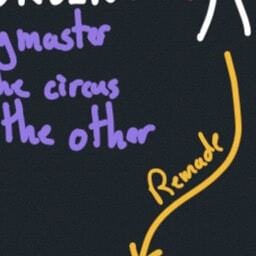 gmaster
he circus
the other
Remade